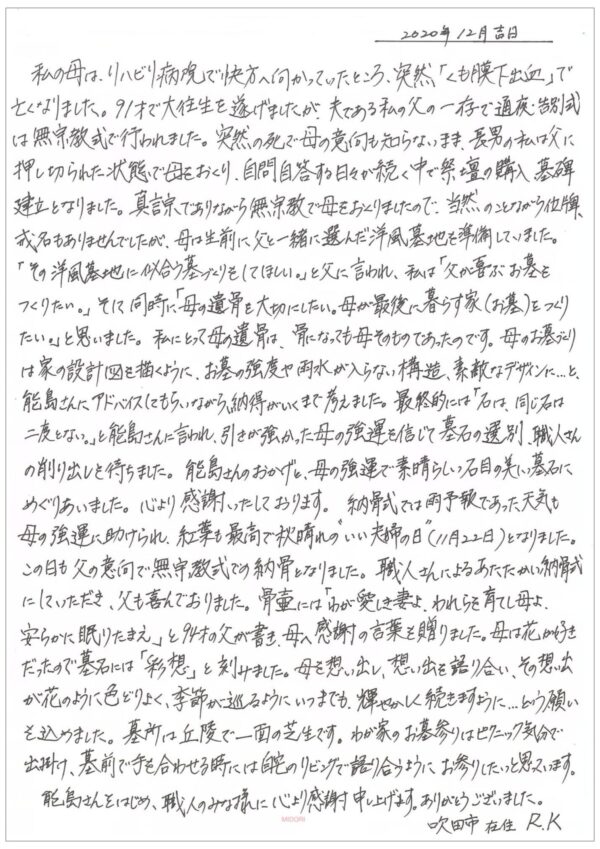 2020年12月吉日
私の母は、リハビリ病院で快方へ向かっていたところ、突然「くも膜下出血」で
亡くなりました。91才で大往生を遂げましたが、夫である私の父の一存で通夜・告別式
は無宗教式で行われました。突然の死で母の意向も知らないまま、長男の私は父に
押し切られた状態で母をおくり、自問自答する日々が続く中で祭壇の購入、墓碑
建立となりました。真言宗でありながら無宗教で母をおくりましたので、当然のことながら位牌、
戒名もありませんでしたが、母は生前に、父と一緒に選んだ洋風墓地を準備していました。
「その洋風墓地に似合う墓づくりをしてほしい。」と父に言われ、私は「父が喜ぶお墓を
つくりたい。」そして同時に「母の遺骨を大切にしたい。母が最後に暮らす家(お墓)をつくり
たい。」と思いました。私にとって母の遺骨は、骨になっても母そのものであったのです。母のお墓づくり
は家の設計図を描くように、お墓の強度や雨水が入らない構造、素敵なデザインに…と、
能島さんにアドバイスしてもらいながら、納得がいくまで考えました。最終的には「石は、同じ石は
二度とない。」と能島さんに言われ、引きが強かった母の強運を信じて墓石の選別、職人さん
の削り出しを待ちました。能島さんのおかげと、母の強運で素晴らしい石目の美しい墓石に
めぐりあいました。心より感謝いたしております。納骨式では雨予報であった天気も
母の強運に助けられ、紅葉も最高で秋晴れの"いい夫婦の日"(11月22日)となりました。
この日も父の意向で無宗教式での納骨となりました。職人さんによるあたたかい納骨式
にしていただき、父も喜んでおりました。骨壷には「わが愛しき妻よ、われらを育てし母よ、
安らかに眠りたまえ」と94才の父が書き、母へ感謝の言葉を贈りました。母は花が好き
だったので墓石には「彩想」と刻みました。母を想い出し、想い出を語り合い、その想い出
が花のように色どりよく、季節が巡るようにいつまでも、輝やかしく続きますように…という願い
を込めました。墓所は丘陵で一面の芝生です。わが家のお墓参りはピクニック気分で
出掛け、墓前で手を合わせる時には自宅のリビングで語り合うように、お参りしたいと思っています。
能島さんをはじめ、職人のみな様に心より感謝申し上げます。ありがとうございました。
吹田市 在住 R.K
MIDORI